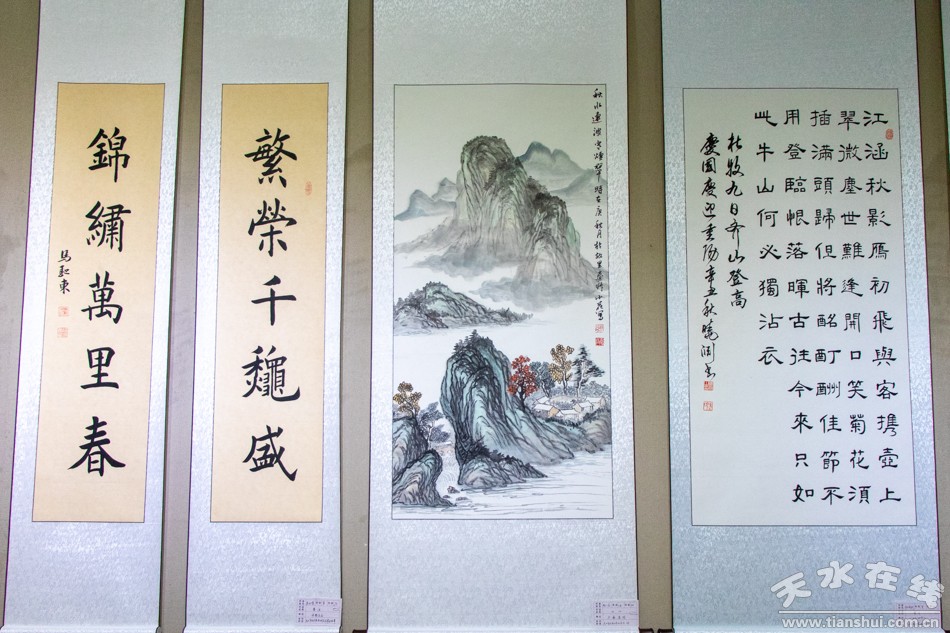 江涵秋影鴈初飛與客携壺上
翠微塵世難逢開口笑菊花須
插滿頭歸但將酩酊酬佳節不
用登臨恨落暉古往今來只如
此牛山何必獨沾衣
杜牧九日齐山登高
慶国慶迎重陽辛丑秋曉
秋水連波寒煙翠
繁榮千龝盛
錦繡萬里春
天水在线
www.tianshui.com.cn